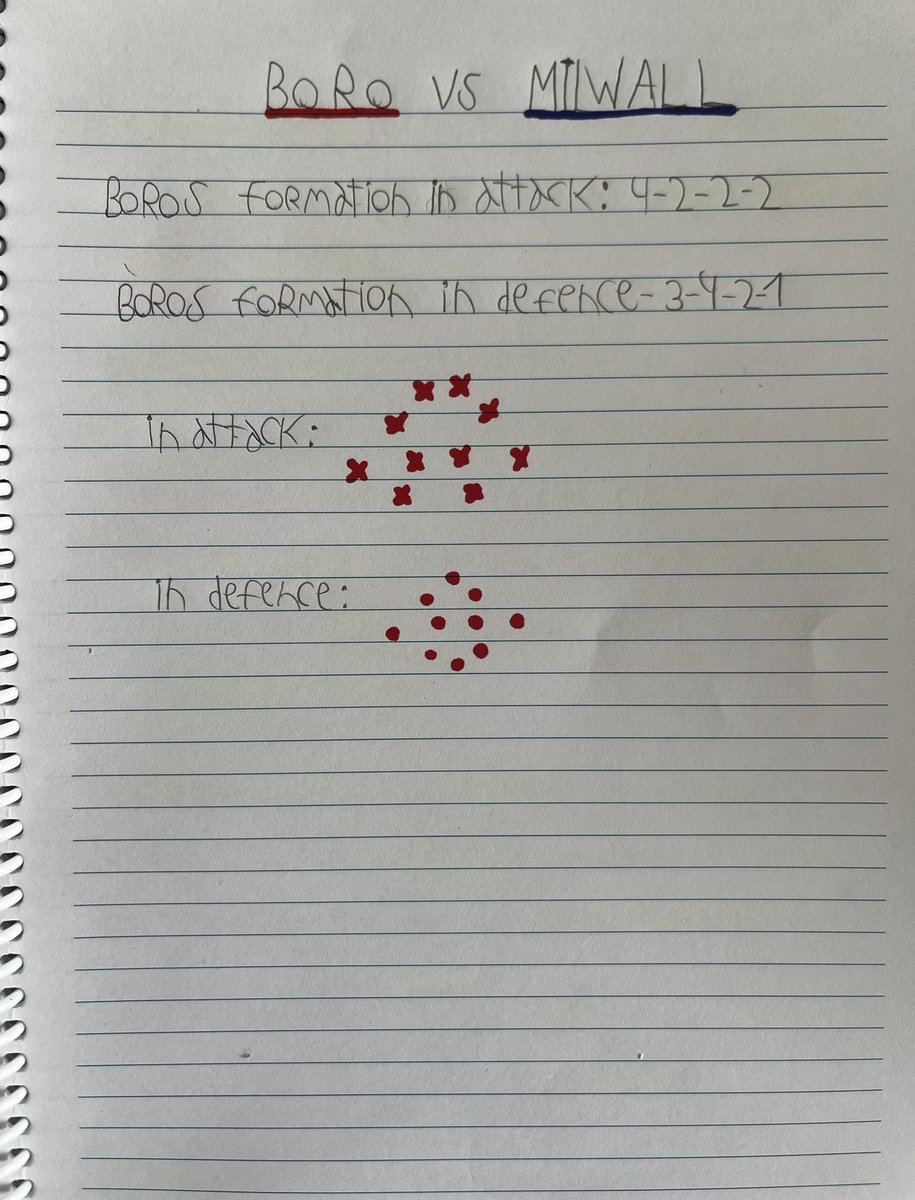 BORO VS MIlWALL
BOROS FORMAtion in attack: 4-2-2-2
BOROS FORMAtION in defence- 3-4-2-1
in attack:
in defence: